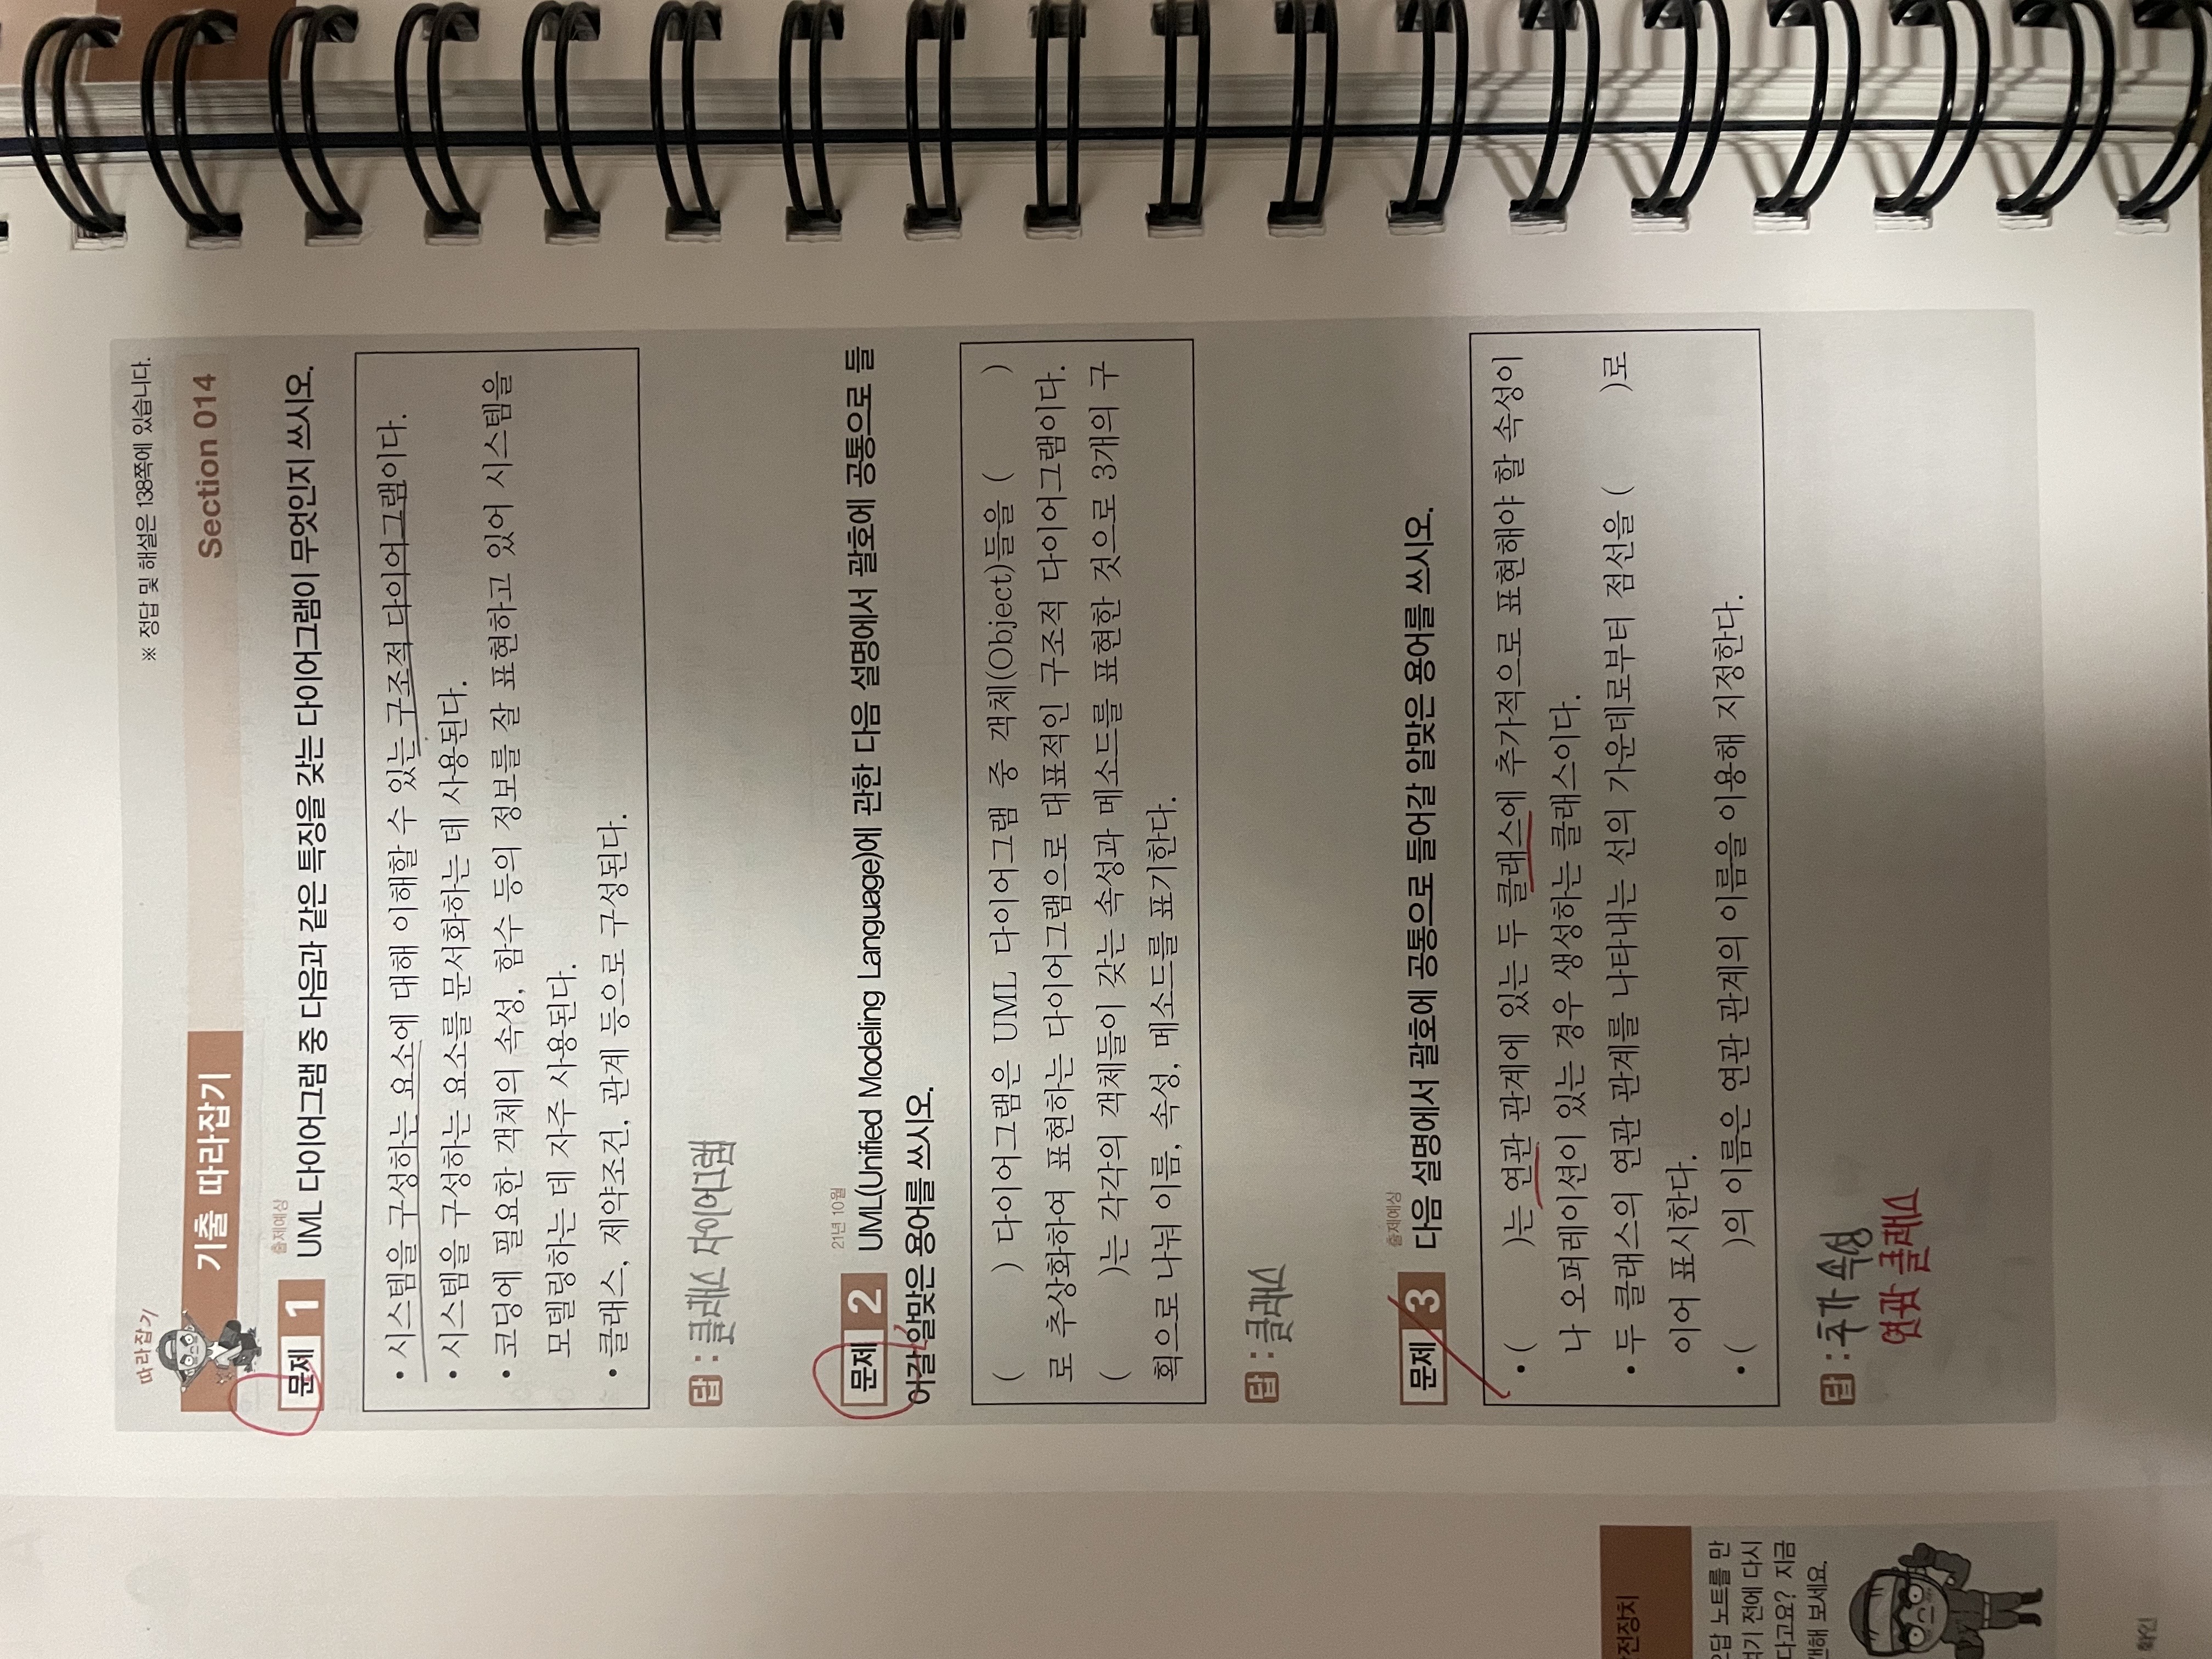 따라잡기
※ 정답 및 해설은 138쪽에 있습니다.
기출 따라잡기
Section 014
출제예상
문제 1 UML 다이어그램 중 다음과 같은 특징을 갖는 다이어그램이 무엇인지 쓰시오.
• 시스템을 구성하는 요소에 대해 이해할 수 있는 구조적 다이어그램이다.
• 시스템을 구성하는 요소를 문서화하는 데 사용된다.
• 코딩에 필요한 객체의 속성, 함수 등의 정보를 잘 표현하고 있어 시스템을
모델링하는 데 자주 사용된다.
• 클래스, 제약조건, 관계 등으로 구성된다.
답 : 클래스 다이어그램
21년 10월
문제 2 UML(Unified Modeling Language)에 관한 다음 설명에서 괄호에 공통으로 들
어갈 알맞은 용어를 쓰시오.
( ) 다이어그램은 UML 다이어그램 중 객체(Object)들을 ( )
로 추상화하여 표현하는 다이어그램으로 대표적인 구조적 다이어그램이다.
( )는 각각의 객체들이 갖는 속성과 메소드를 표현한 것으로 3개의 구
획으로 나눠 이름, 속성, 메소드를 표기한다.
답 : 클래스
출제예상
문제 3 다음 설명에서 괄호에 공통으로 들어갈 알맞은 용어를 쓰시오.
• ( )는 연관 관계에 있는 두 클래스에 추가적으로 표현해야 할 속성이
나 오퍼레이션이 있는 경우 생성하는 클래스이다.
• 두 클래스의 연관 관계를 나타내는 선의 가운데로부터 점선을 ( )로
이어 표시한다.
• ( )의 이름은 연관 관계의 이름을 이용해 지정한다.
답 : 추가 속성
연관 클래스
전장치
오답 노트를 만
기 전에 다시
다고요? 지금
해 보세요.
확인